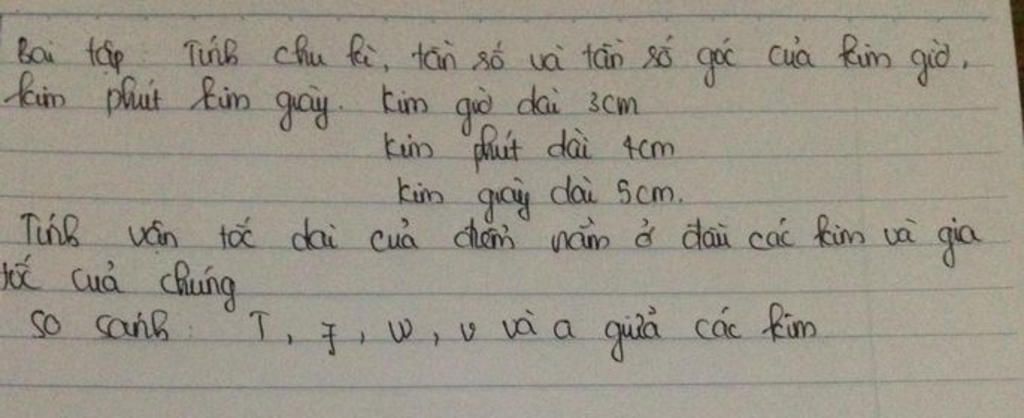 Bai tập : Tính chu kì, tần số và tần số góc của kim giờ,
kim phút kim giây. kim giờ dài 3cm
kim phút dài 4cm
kim giây dài 5cm.
Tính vận tốc dài của điểm nằm ở đầu các kim và gia
tốc cuả chúng
so sánh : T, f, w, v và a giữa các kim